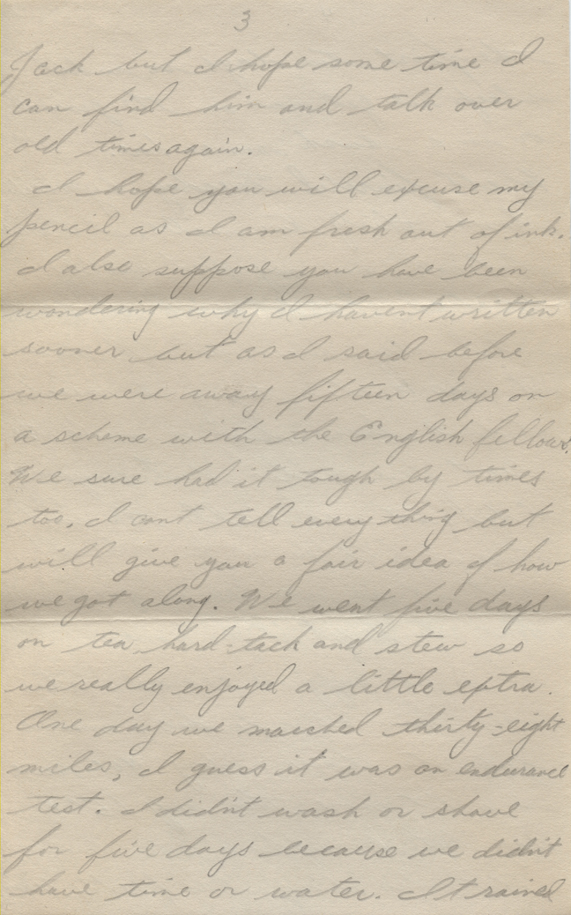 3
Jack but I hope some time I
can find him and talk over
old times again.
I hope you will excuse my
pencil as I am fresh out of ink.
I also suppose you have been
wondering why I havent written
sooner but as I said before
we were away fifteen days on
a scheme with the English fellows.
We sure had it tough by times
too. I cant tell everything but
will give you a fair idea of how
we got along. We went five days
on tea hard-tack and stew so
we really enjoyed a little extra.
One day we marched thirty-eight
miles, I guess it was an endurance
test. I didn't wash or shave
for five days because we didn't
have time or water. It rained